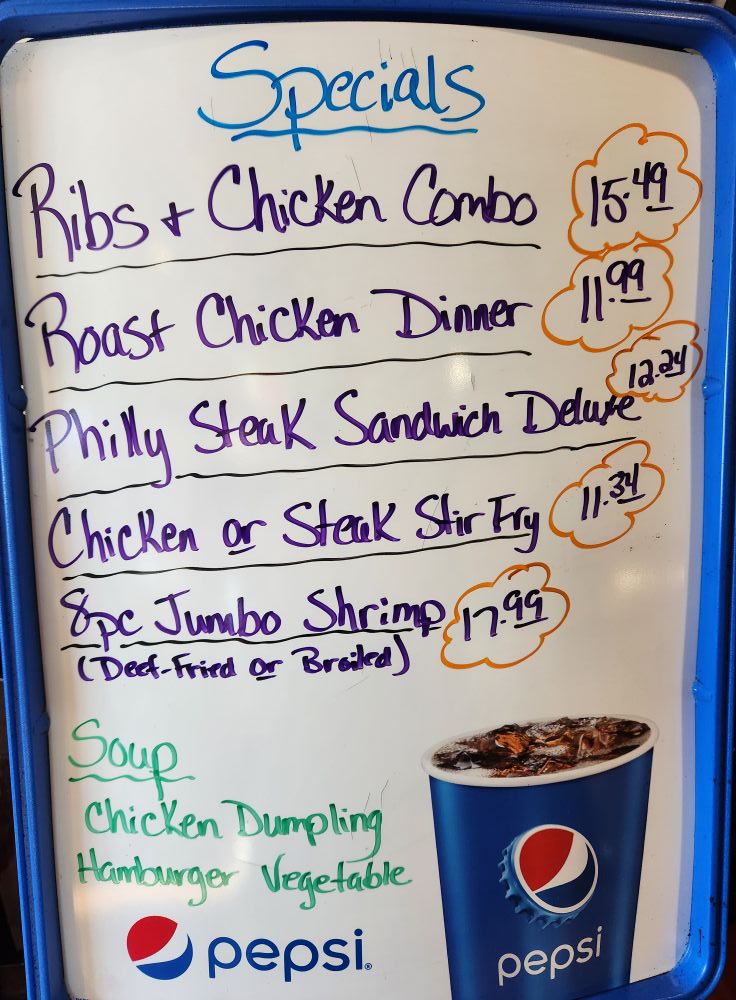 Specials
Ribs + Chicken Combo 15.49
Roast Chicken Dinner 11.99
Philly Steak Sandwich Deluxe 12.24
Chicken or Steak Stir Fry 11.34
8pc Jumbo Shrimp 17.99
(Deef-Fried or Broiled)
Soup
Chicken Dumpling
Hamburger Vegetable
pepsi®
pepsi